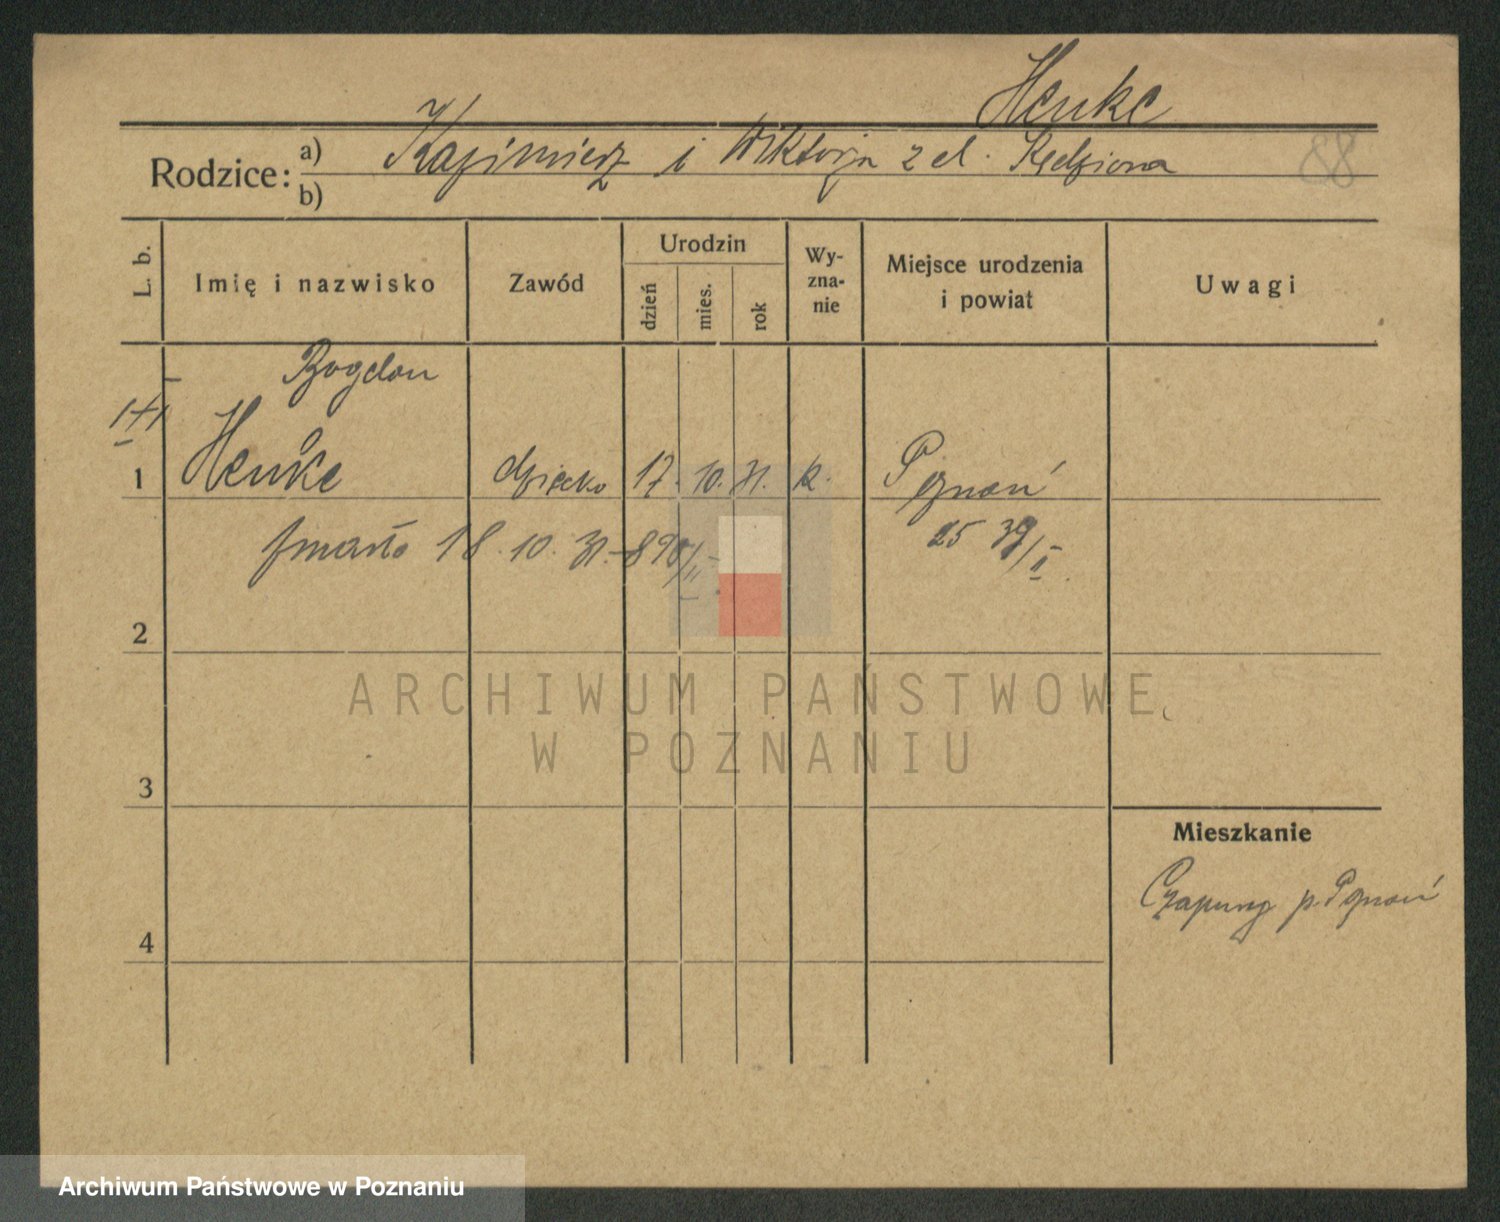 Henke
Rodzice: a) Kazimierz i Wiktorja z d. Kędziora 88
b)
L. b. Imię i nazwisko Zawód Urodzin dzień mies. rok Wy-zna-nie Miejsce urodzenia i powiat Uwagi
Bogdan
1 Henke dziecko 17. 10. 31. k. Poznań
zmarło 18. 10. 31. – 890/II 25 39/II
2
ARCHIWUM PAŃSTWOWE
W POZNANIU
3
Mieszkanie
Czapury p. Poznań
4
Archiwum Państwowe w Poznaniu